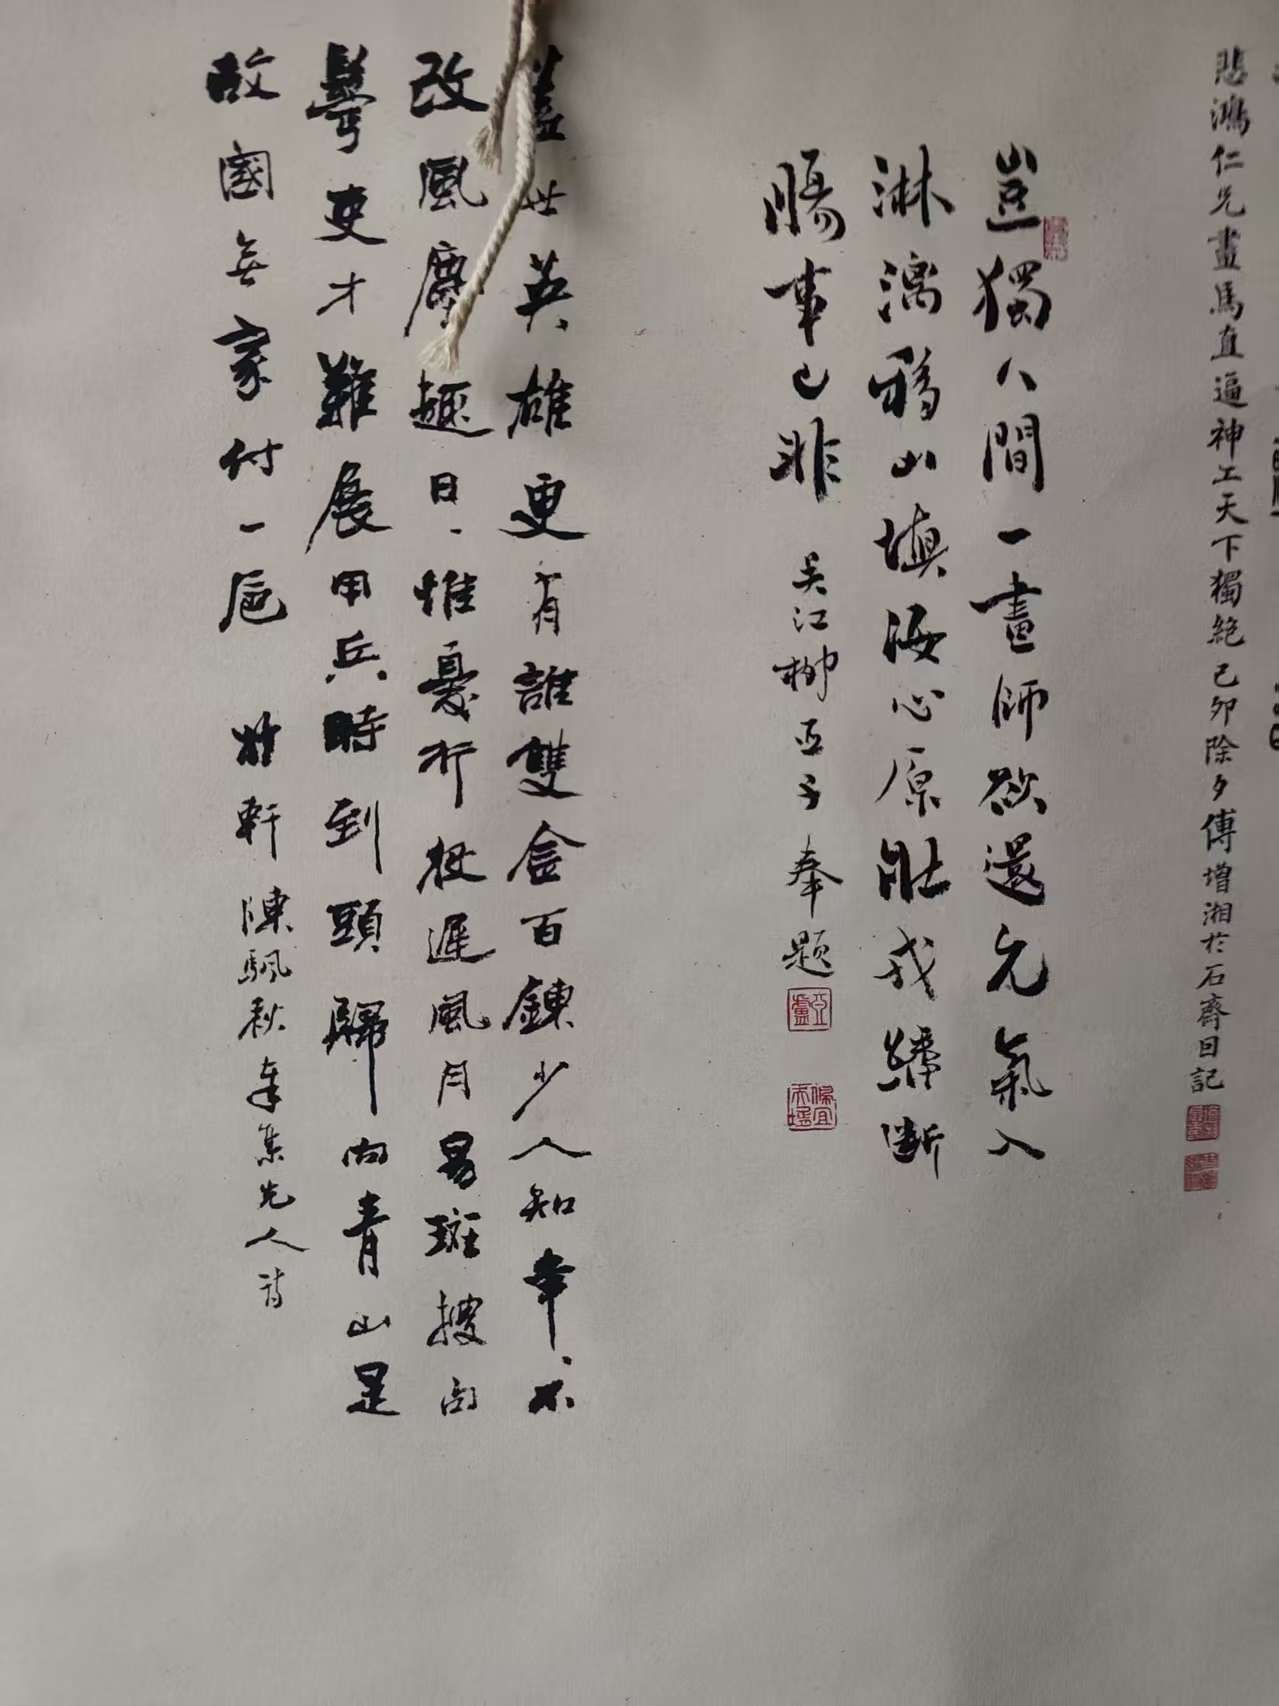 悲鴻仁兄畫馬直逼神工天下獨絕己卯除夕傅增湘於石齋日記
豈獨人間一畫師欲還元氣入
淋漓移山填海心原壯戎緯斷
腸事已非 吳江柳亞子奉題
亞廬
蓋世英雄更有誰雙金百鍊少人知幸不
改風塵趣日惟憂行杖遲風月易斑搜句
鬢更才難展甲兵時到頭歸向青山是
故國無家付一巵 軒陳颿秋奉集先人詩